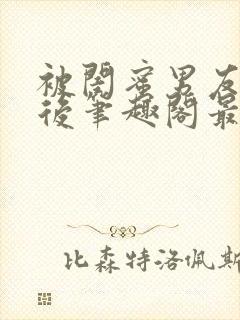 被闺蜜男友
后筆趣閣最
比森特洛佩斯